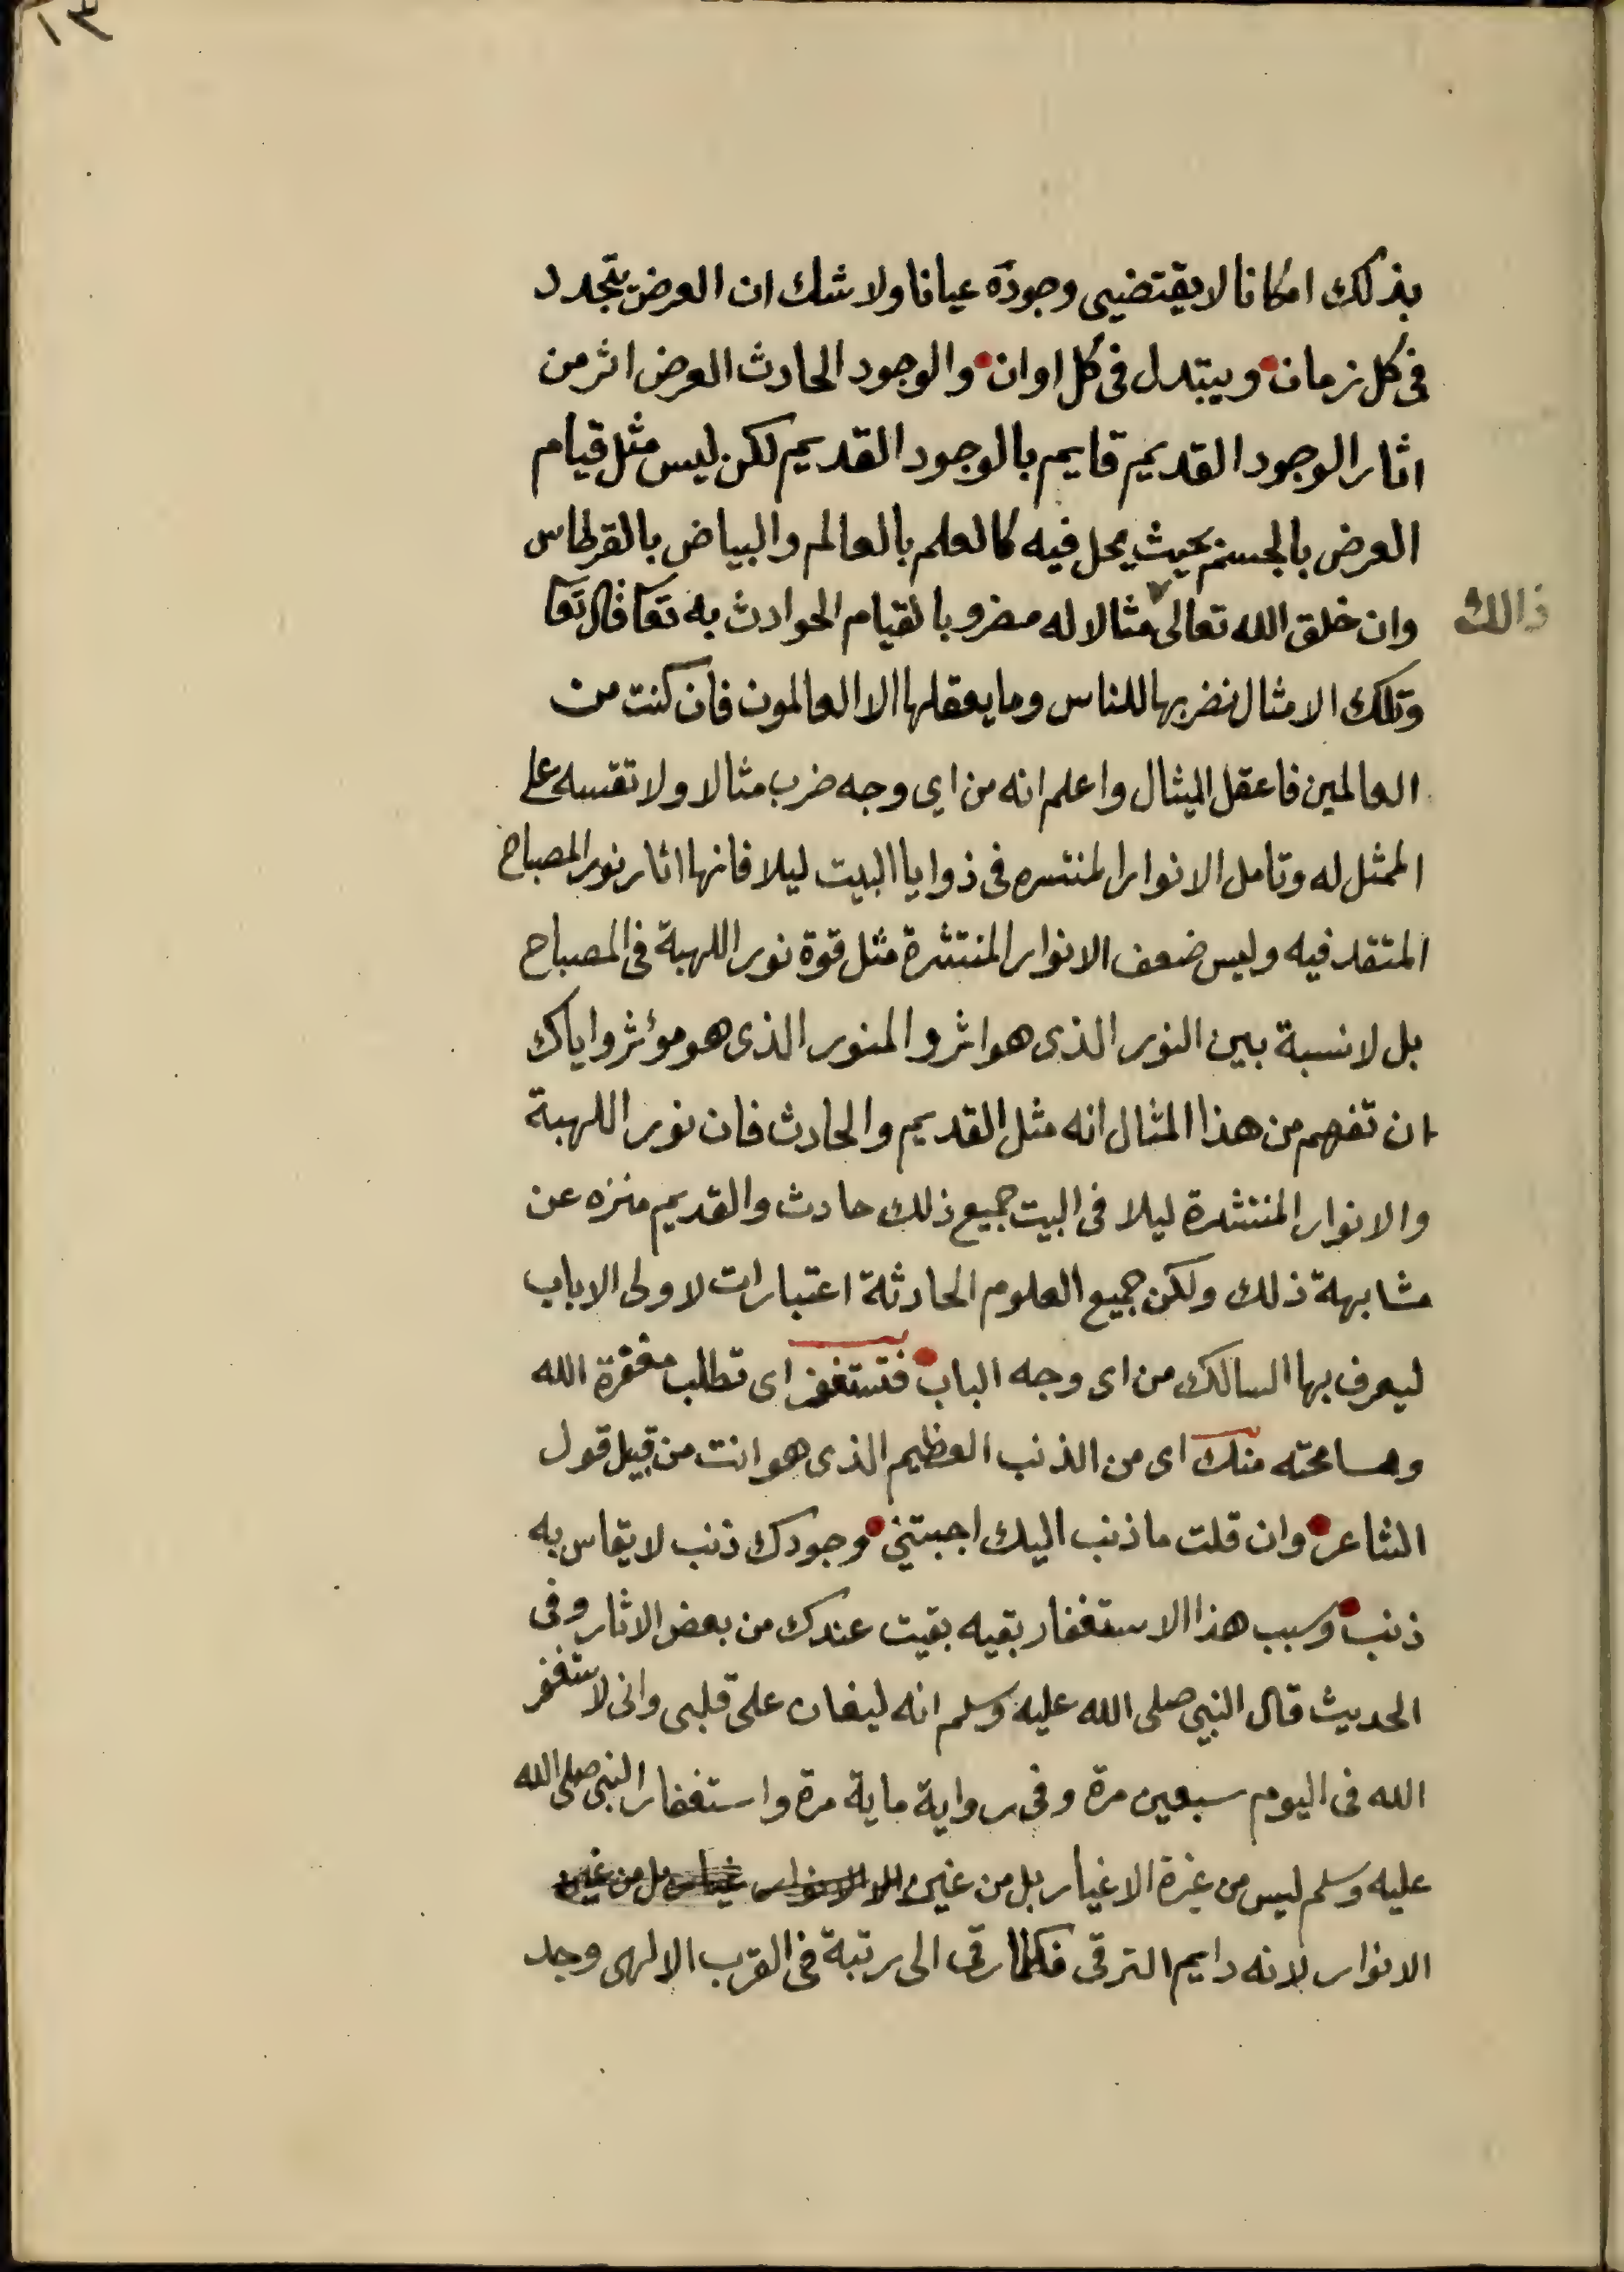 ١٣
بذلك امكانا لا يقتضيى وجوده عيانا ولا شك ان العرض يتجدد
فى كل زمان ويبتدل فى كل اوان والوجود الحادث العرض اثر من
اثار الوجود القديم قايم بالوجود القديم لكن ليس مثل قيام
العرض بالجسم بحيث يحل فيه كالعلم بالعالم والبياض بالقرطاس
وان خلق الله تعالى مثالا له مضروبا لقيام الحوادث به تعا قال تعا
ذالك
وتلك الامثال نضربها للناس وما يعقلها الا العالمون فان كنت من
العالمين فاعقل الميثال واعلم انه من اي وجه ضرب مثالا ولا تقسه على
الممثل له وتامل الانوار المنتسره فى ذوايا البيت ليلا فانها اثار نور المصباح
المتقد فيه وليس ضعف الانوار المنتشرة مثل قوة نور اللهبة فى المصباح
بل لا نسبة بين النور الذى هو اثر والمنور الذى هو مؤثر واياك
ان تفهم من هذا المثال انه مثل القديم والحادث فان نور اللهبة
والانوار المنتشرة ليلا فى البيت جميع ذلك حادث والقديم منزه عن
مشابهة ذلك ولكن جميع العلوم الحادثة اعتبارات لاولى الاباب
ليعرف بها السالك من اى وجه الباب فتستغفر اى تطلب مغفرة الله
ومسامحته منك اى من الذنب العظيم الذى هو انت من قبيل قول
الشاعر وان قلت ما ذنب اليك اجبتنى وجودك ذنب لا يقاس به
ذنب وسبب هذا الاستغفار بقيه بقيت عندك من بعض الاثار وفى
الحديث قال النبى صلى الله عليه وسلم انه ليغان على قلبى وانى لاستغفر
الله فى اليوم سبعين مرة وفى رواية ماية مرة واستغفار النبى صلى الله
عليه وسلم ليس من غرة الاغيار بل من غين
الانوار لانه دايم الترقى فكلما رقى الى رتبة فى القرب الالهى وجد